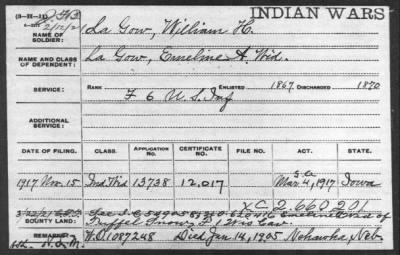 INDIAN WARS
(3-H-11)
2/12/21
NAME OF SOLDIER: La Gow, William H.
NAME AND CLASS OF DEPENDENT: La Gow, Emeline A. Wid.
SERVICE: RANK ENLISTED 1867 DISCHARGED 1870
F 6 U.S. Inf
ADDITIONAL SERVICE:
DATE OF FILING. CLASS. APPLICATION NO. CERTIFICATE NO. FILE NO. ACT. STATE.
S.a
1917 Nov. 15 Ind. Wid 13738 12,017 Mar 4, 1917 Iowa
XC 2,660,201
3/22/21 See
BOUNTY LAND: F 1 Wis Cav
W.O. 1087248 Died Jan. 14, 1925 Nehawka, Neb.